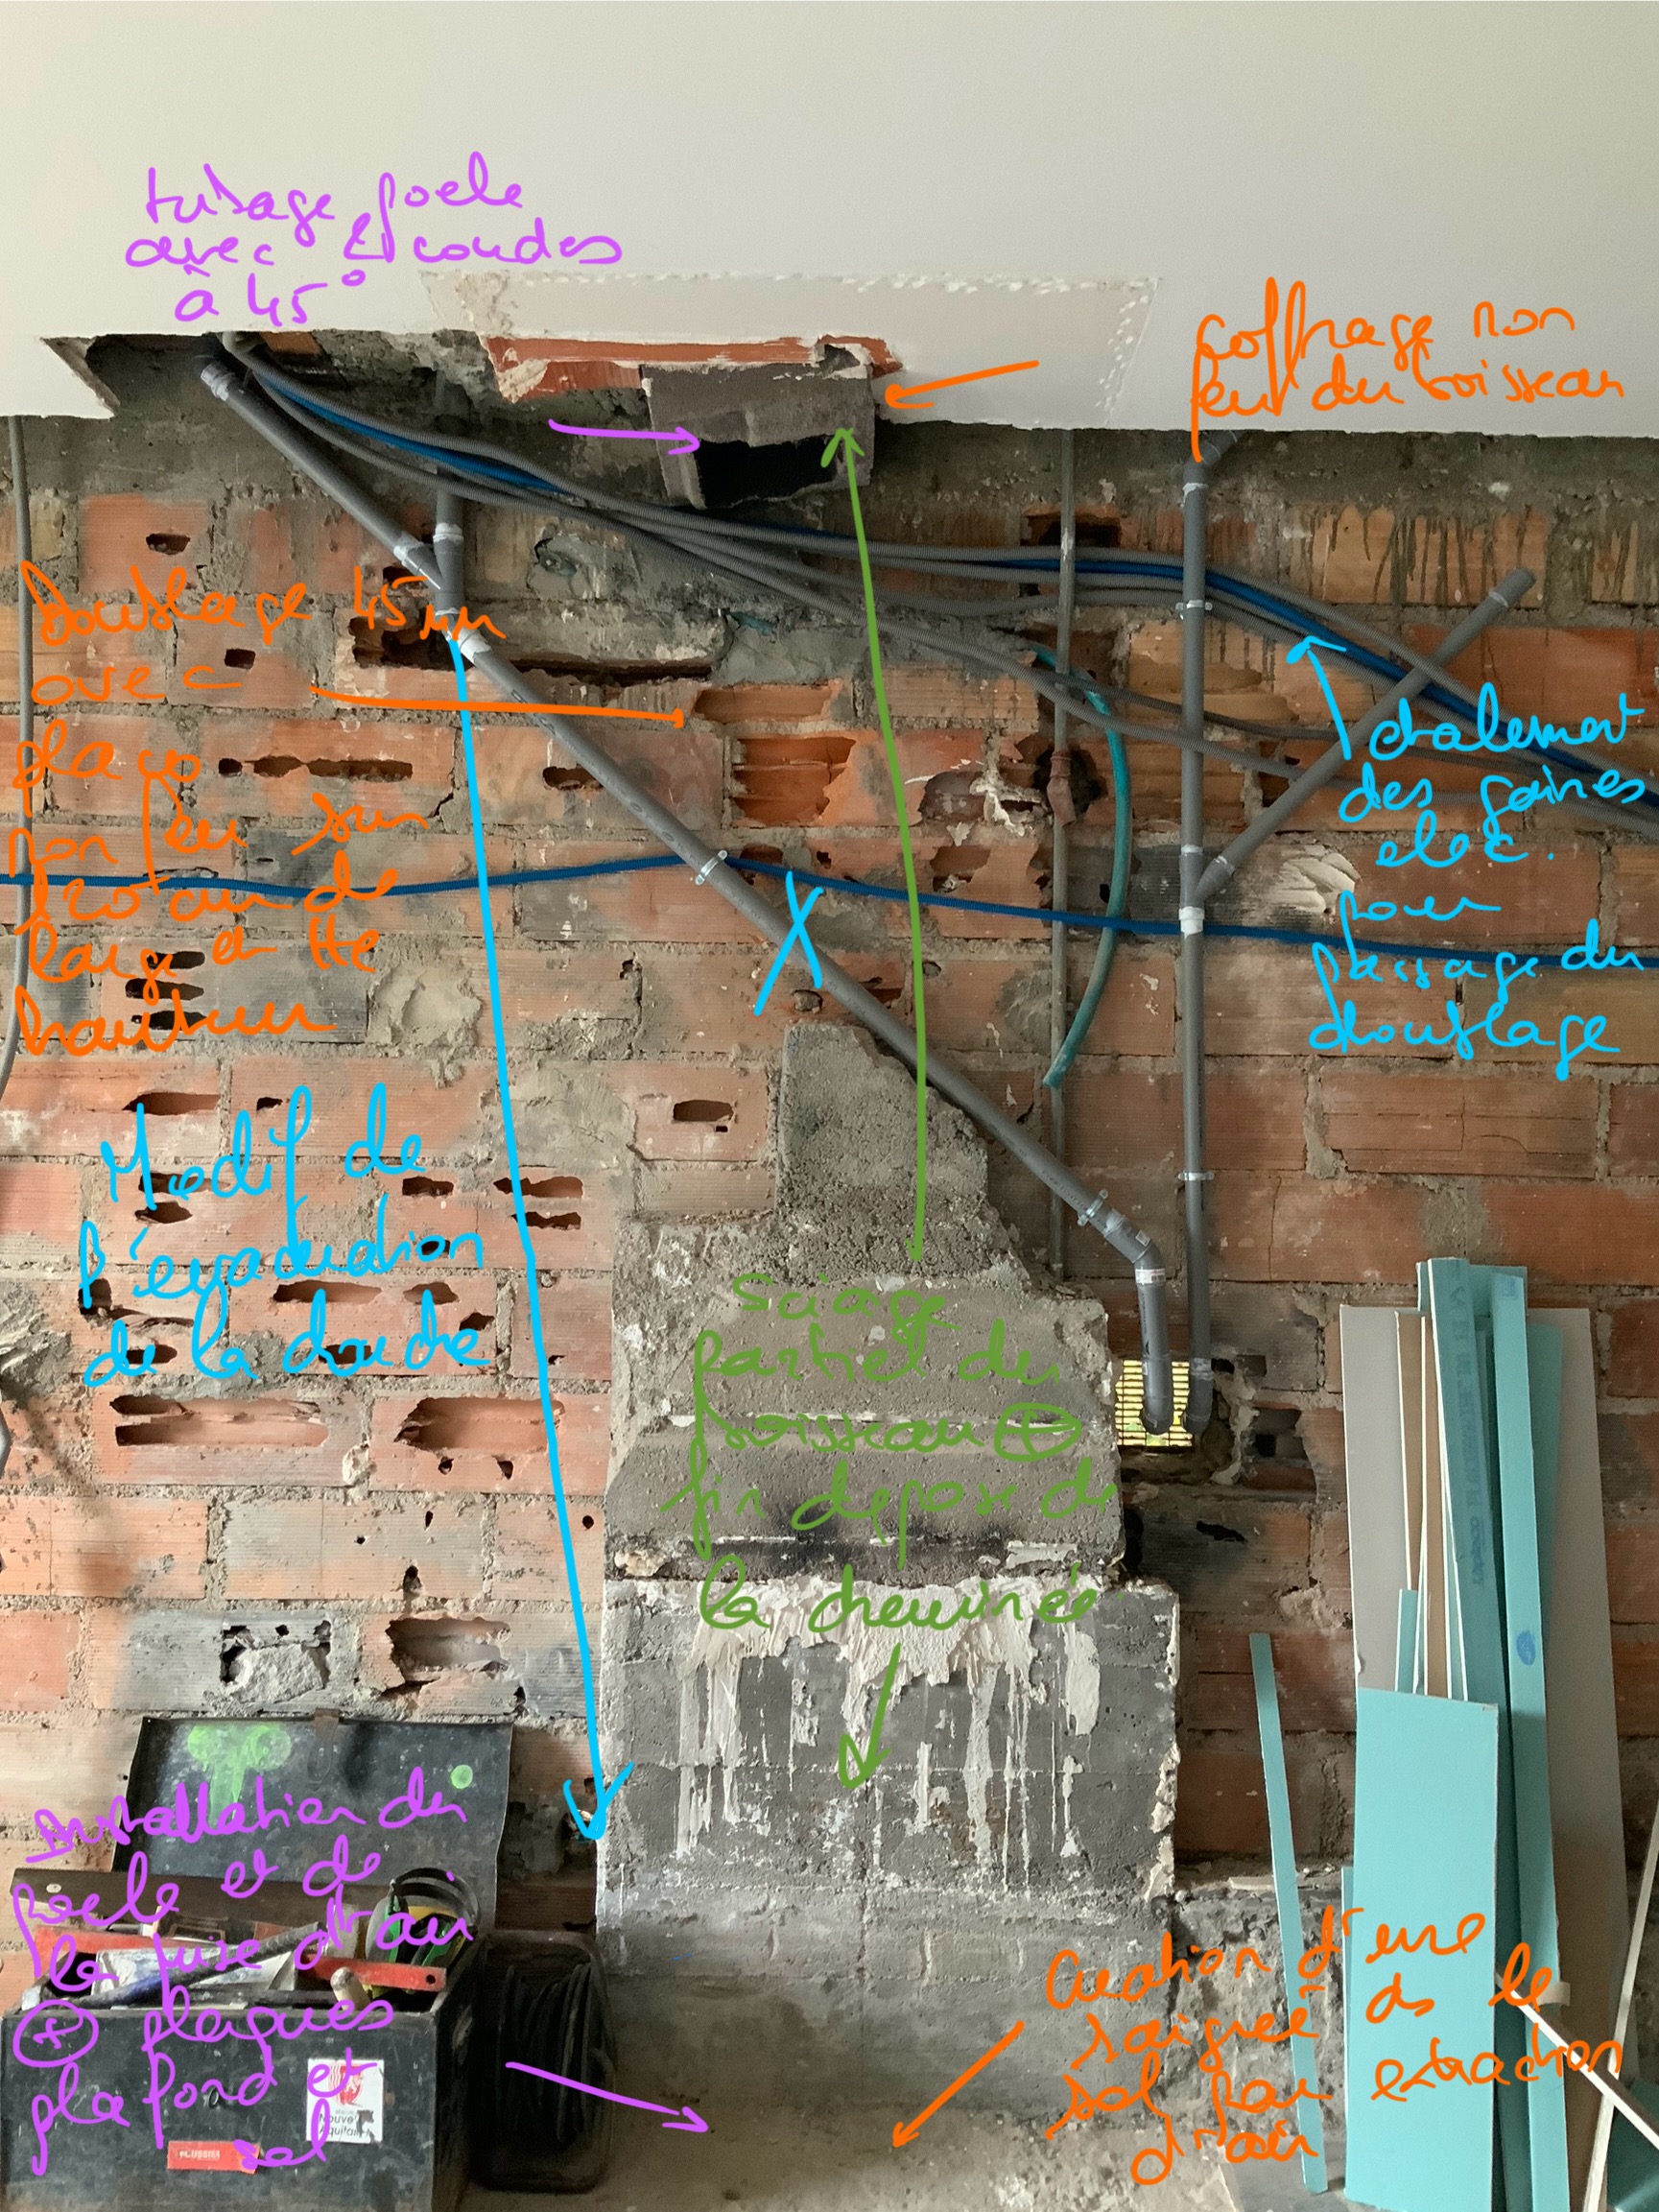 tubage poele
avec 2 coudes
à 45°
coffrage non
feu du boisseau
Doublage 45 mm
avec
placo
non feu sur
120 cm de
large et tte
hauteur
décalement
des gaines
elec.
pour
passage du
doublage
X
Modif de
l'évacuation
de la douche
Sciage
partiel du
boisseau ⊕
fin dépose de
la cheminée.
Installation du
poele et de
la prise d'air
⊕ plaques
plafond et
sol
Création d'une
saignée ds le
sol pour extraction
d'air